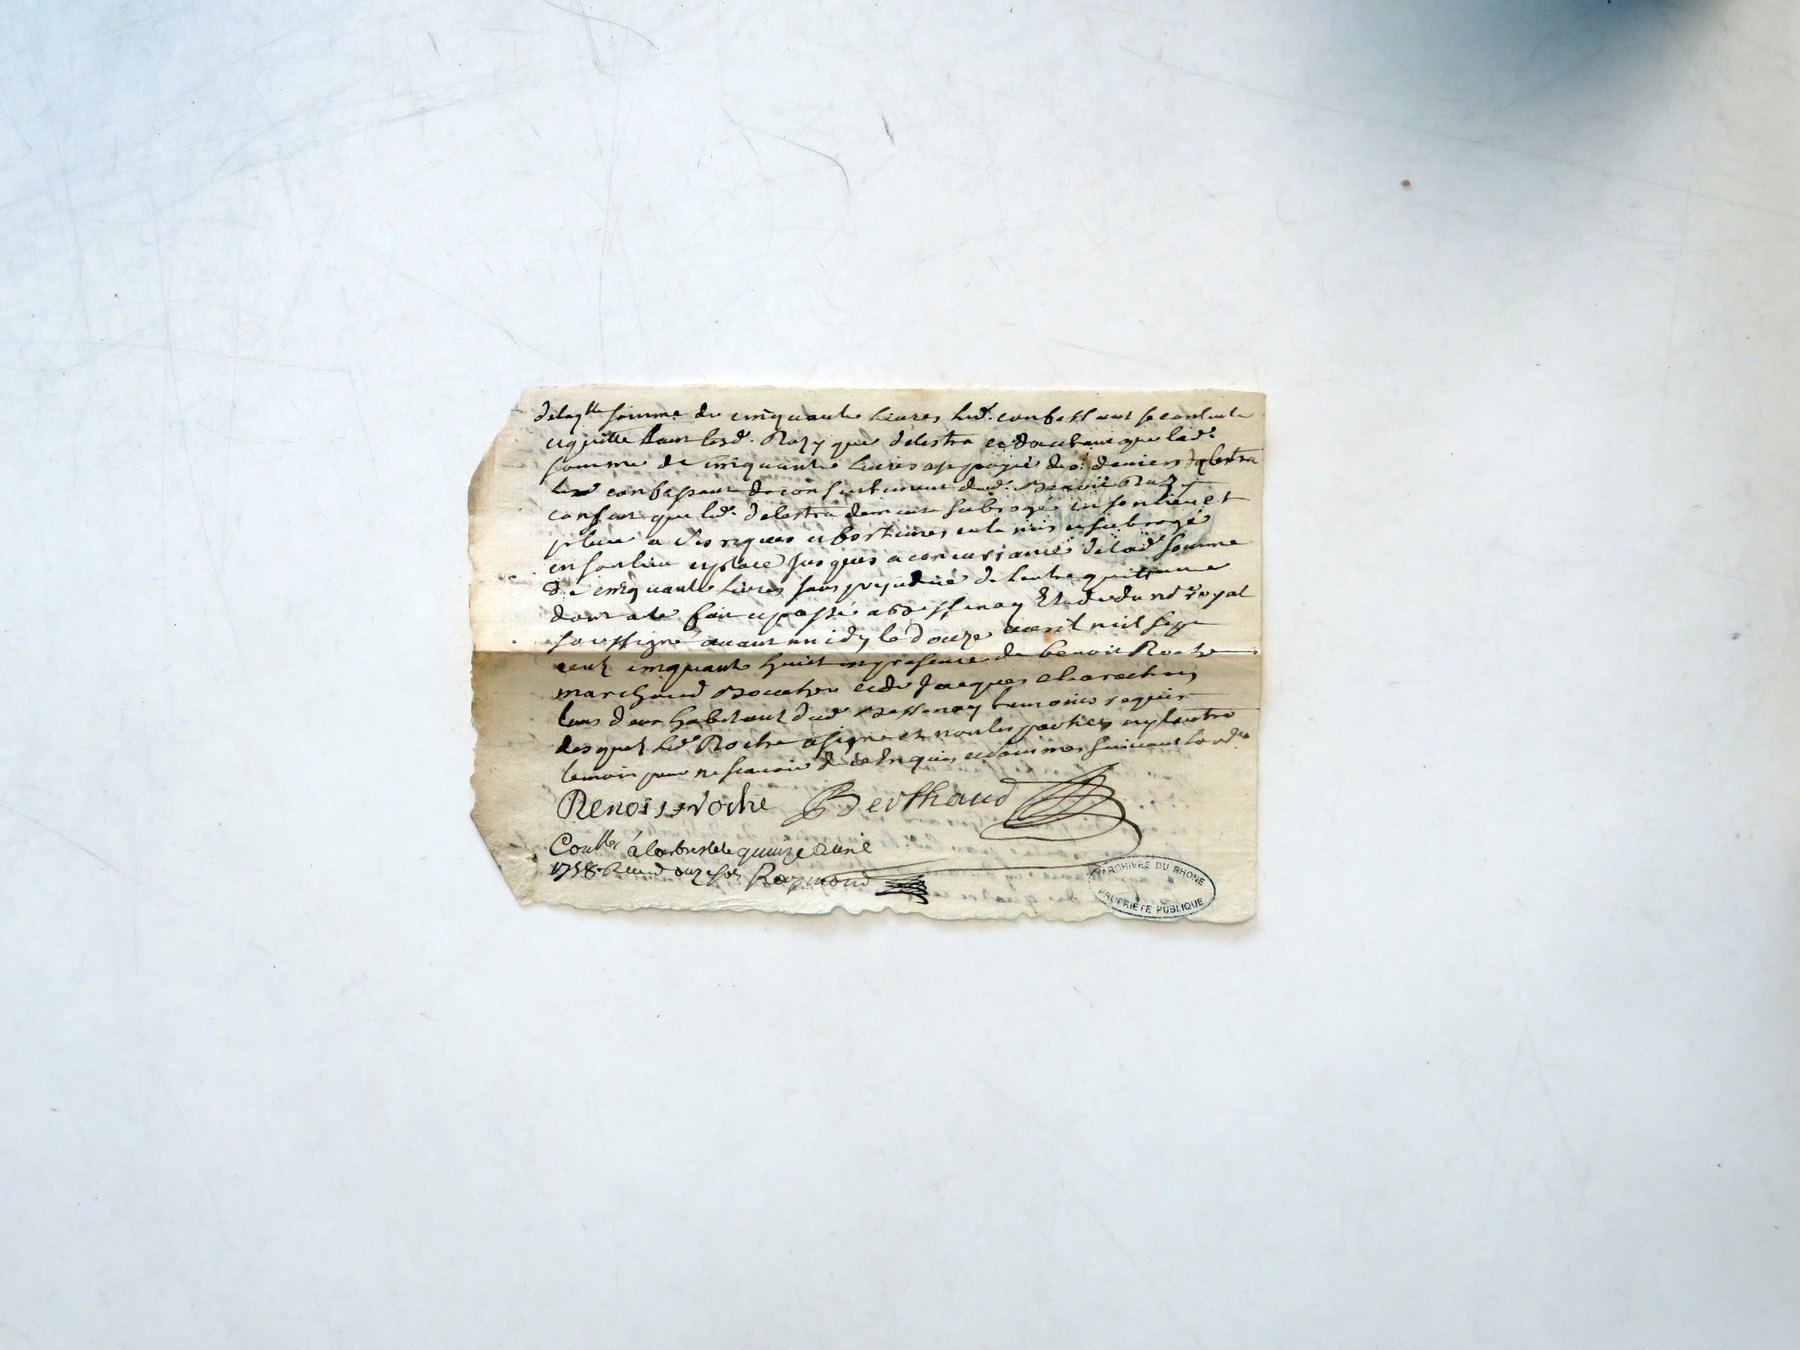 delaq.lle somme de cinquante livres led. confessant se contente
et quitte tant lesd. Razy que delestra et d'autant que lad.
somme de cinquante livres est payée des deniers delestra
led. confessant du consentement dud. Benoit Razy
consent que led. delestra demeure subrogé en son lieu et
place a ses risques et fortunes et la mis et subrogé
en son lieu et place jusques a concurrance delad. somme
de cinquante livres sans prejudice de lautre quittance
dont acte fait et passé a Bessenay Etude du no.re royal
soussigné avant midy le douze avril mil sept
cent cinquante huit en presence de benoit Roche
marchand Boucher et de Jacques
tous deux habitant dud. Bessenay temoins requis
lesquel led. Roche a signé et non les parties ny lautre
temoin pour ne scavoir de ce Enquis et sommes suivant lord.
Benoist Roche Berthaud
Con.llé à larbresle le quinze avril
1758 Reçu douze sols Raymond
ARCHIVES DU RHONE
PROPRIÉTÉ PUBLIQUE